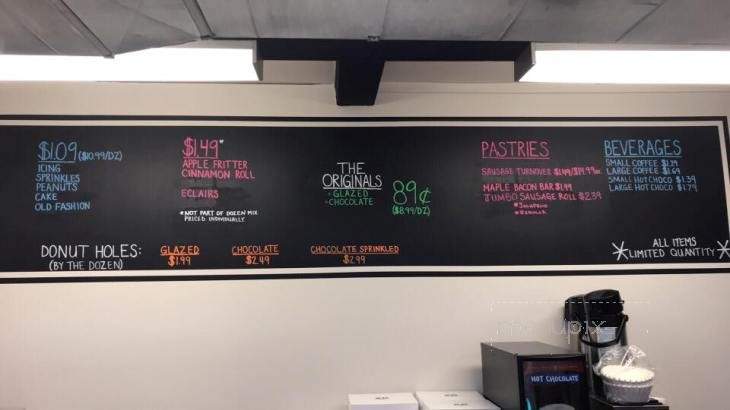 $1.09 ($10.99/DZ)
ICING
SPRINKLES
PEANUTS
CAKE
OLD FASHION
$1.49*
APPLE FRITTER
CINNAMON ROLL
ECLAIRS
*NOT PART OF DOZEN MIX
PRICED INDIVIDUALLY
THE
ORIGINALS
- GLAZED
- CHOCOLATE
89¢
($8.99/DZ)
PASTRIES
SAUSAGE TURNOVER $1.49/$14.99 DZ
MAPLE BACON BAR $1.99
JUMBO SAUSAGE ROLL $2.39
*JALAPENO
*REGULAR
BEVERAGES
SMALL COFFEE $1.29
LARGE COFFEE $1.69
SMALL HOT CHOCO $1.39
LARGE HOT CHOCO $1.79
DONUT HOLES:
(BY THE DOZEN)
GLAZED
$1.99
CHOCOLATE
$2.49
CHOCOLATE SPRINKLED
$2.99
* ALL ITEMS *
LIMITED QUANTITY
HOT CHOCOLATE